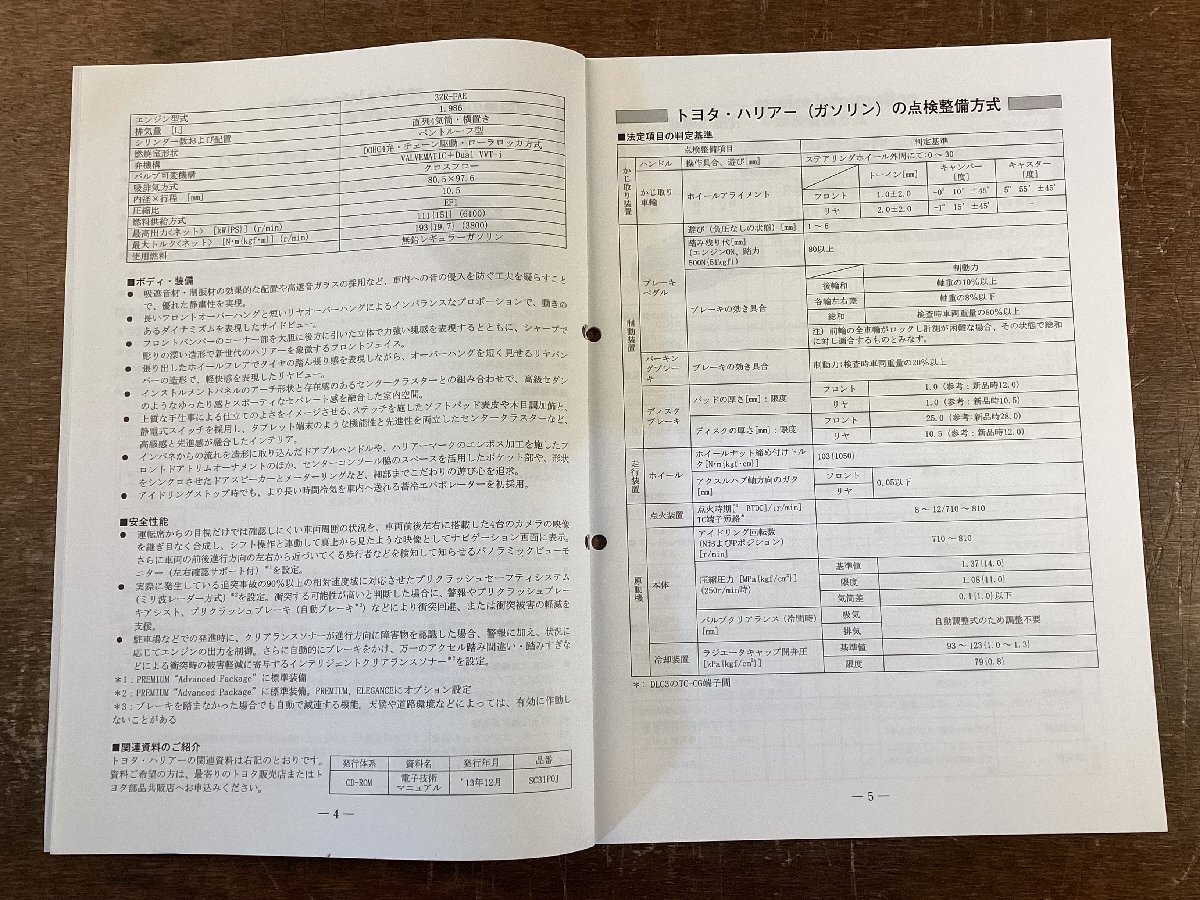 エンジン型式 3ZR-FAE
排気量 [L] 1.986
シリンダー数および配置 直列4気筒・横置き
燃焼室形状 ペントルーフ型
弁機構 DOHC4弁・チェーン駆動・ローラロッカ方式
バルブ可変機構 VALVEMATIC+Dual VVT-i
吸排気方式 クロスフロー
内径×行程 [mm] 80.5×97.6
圧縮比 10.5
燃料供給方式 EFI
最高出力<ネット> [kW(PS)] (r/min) 111[151] (6100)
最大トルク<ネット> [N・m(kgf・m)] (r/min) 193[19.7] (3800)
使用燃料 無鉛レギュラーガソリン
■ボディ・装備
● 吸遮音材・制振材の効果的な配置や高遮音ガラスの採用など、車内への音の侵入を防ぐ工夫を凝らすこと
で、優れた静粛性を実現。
● 長いフロントオーバーハングと短いリヤオーバーハングによるインバランスなプロポーションで、動きの
あるダイナミズムを表現したサイドビュー。
● フロントバンパーのコーナー部を大胆に後方に引いた立体で力強い塊感を表現するとともに、シャープで
彫りの深い造形で新世代のハリアーを象徴するフロントフェイス。
● 張り出したホイールフレアでタイヤの踏ん張り感を表現しながら、オーバーハングを短く見せるリヤバン
パーの造形で、軽快感を表現したリヤビュー。
● インストルメントパネルのアーチ形状と存在感のあるセンタークラスターとの組み合わせで、高級セダン
のようなゆったり感とスポーティなセパレート感を融合した室内空間。
● 上質な手仕事による仕立てのよさをイメージさせる、ステッチを施したソフトパッド表皮や木目調加飾と、
静電式スイッチを採用し、タブレット端末のような機能性と先進性を両立したセンタークラスターなど、
高級感と先進感が融合したインテリア。
● インパネからの流れを造形に取り込んだドアプルハンドルや、ハリアーマークのエンボス加工を施したフ
ロントドアトリムオーナメントのほか、センターコンソール脇のスペースを活用したポケット部や、形状
をシンクロさせたドアスピーカーとメーターリングなど、細部までこだわりの遊び心を追求。
● アイドリングストップ時でも、より長い時間冷気を車内へ送れる蓄冷エバポレーターを初採用。
■安全性能
● 運転席からの目視だけでは確認しにくい車両周囲の状況を、車両前後左右に搭載した4台のカメラの映像
を継ぎ目なく合成し、シフト操作と連動して真上から見たような映像としてナビゲーション画面に表示。
さらに車両の前後進行方向の左右から近づいてくる歩行者などを検知して知らせるパノラミックビューモ
ニター(左右確認サポート付)*1を設定。
● 実際に発生している追突事故の90%以上の相対速度域に対応させたプリクラッシュセーフティシステム
(ミリ波レーダー方式)*2を設定。衝突する可能性が高いと判断した場合に、警報やプリクラッシュブレー
キアシスト、プリクラッシュブレーキ(自動ブレーキ*3)などにより衝突回避、または衝突被害の軽減を
支援。
● 駐車場などでの発進時に、クリアランスソナーが進行方向に障害物を認識した場合、警報に加え、状況に
応じてエンジンの出力を制御。さらに自動的にブレーキをかけ、万一のアクセル踏み間違い・踏みすぎな
どによる衝突時の被害軽減に寄与するインテリジェントクリアランスソナー*1を設定。
*1:PREMIUM “Advanced Package”に標準装備
*2:PREMIUM “Advanced Package”に標準装備、PREMIUM、ELEGANCEにオプション設定
*3:ブレーキを踏まなかった場合でも自動で減速する機能。天候や道路環境などによっては、有効に作動し
ないことがある
■関連資料のご紹介
トヨタ・ハリアーの関連資料は右記のとおりです。
資料ご希望の方は、最寄りのトヨタ販売店またはト
ヨタ部品共販店へお申込みください。
発行体系 資料名 発行年月 品番
CD-ROM 電子技術マニュアル '13年12月 SC31P0J
― 4 ―
トヨタ・ハリアー(ガソリン)の点検整備方式
■法定項目の判定基準
点検整備項目 判定基準
かじ取り装置 ハンドル 操作具合、遊び[mm] ステアリングホイール外周にて:0~30
かじ取り車輪 ホイールアライメント トーイン[mm] キャンバー[度] キャスター[度]
フロント 1.0±2.0 -0°10′±45′ 5°55′±45′
リヤ 2.0±2.0 -1°15′±45′ -
制動装置 ブレーキペダル 遊び(負圧なしの状態)[mm] 1~6
踏み残り代[mm]
[エンジンON、踏力
500N(51kgf)] 80以上
ブレーキの効き具合 制動力
後輪和 軸重の10%以上
各輪左右差 軸重の8%以下
総和 検査時車両重量の50%以上
注)前輪の全車輪がロックし計測が困難な場合、その状態で総和
に対し適合するものとみなす。
パーキングブレーキ ブレーキの効き具合 制動力:検査時車両重量の20%以上
ディスクブレーキ パッドの厚さ[mm]:限度 フロント 1.0(参考:新品時12.0)
リヤ 1.0(参考:新品時10.5)
ディスクの厚さ[mm]:限度 フロント 25.0(参考:新品時28.0)
リヤ 10.5(参考:新品時12.0)
走行装置 ホイール ホイールナット締め付けトル
ク[N・m(kgf・cm)] 103[1050]
アクスルハブ軸方向のガタ
[mm] フロント 0.05以下
リヤ
原動機 点火装置 点火時期[°BTDC]/[r/min]
TC端子短絡* 8~12/710~810
本体 アイドリング回転数
(NおよびPポジション)
[r/min] 710~810
圧縮圧力[MPa(kgf/cm²)]
(250r/min時) 基準値 1.37(14.0)
限度 1.08(11.0)
気筒差 0.1(1.0)以下
バルブクリアランス(冷間時)
[mm] 吸気 自動調整式のため調整不要
排気
冷却装置 ラジエータキャップ開弁圧
[kPa(kgf/cm²)] 基準値 93~123(1.0~1.3)
限度 79(0.8)
*:DLC3のTC-CG端子間
― 5 ―